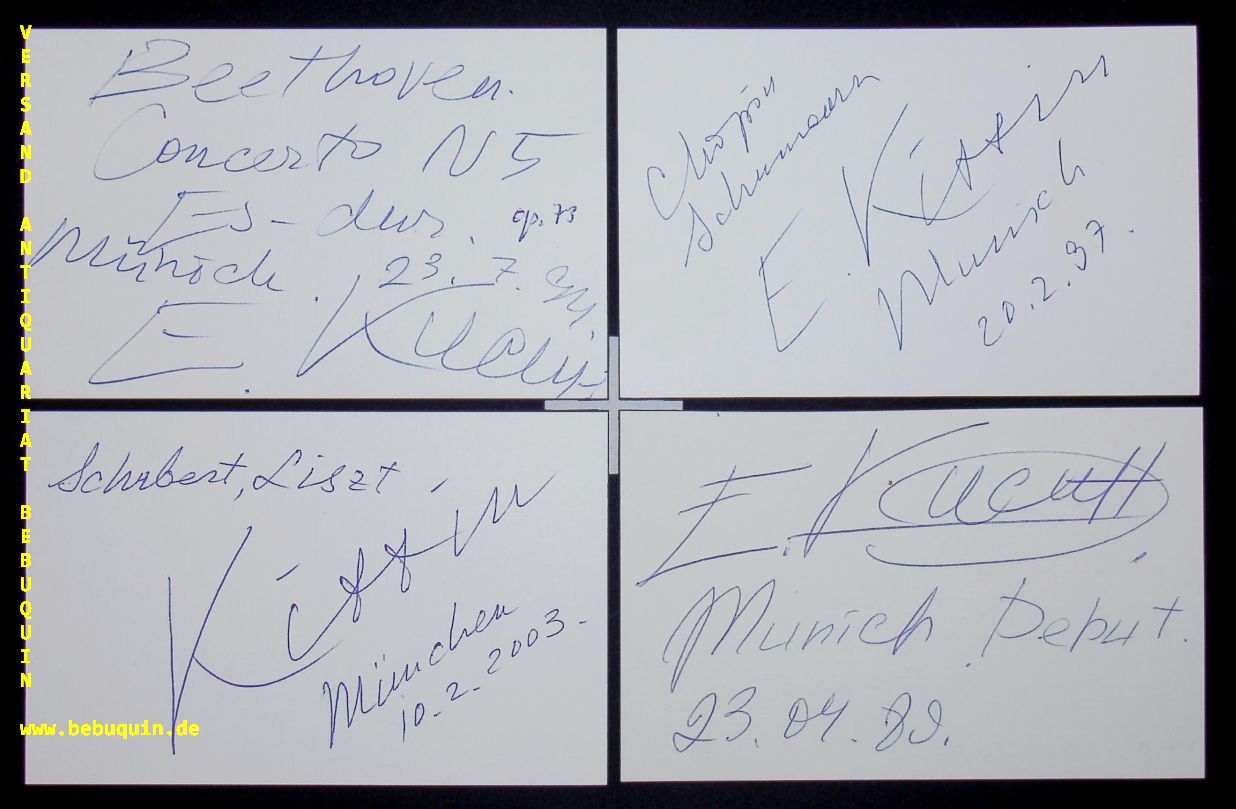 VERSAND ANTIQUARIAT BEBUQUIN
www.bebuquin.de
Beethoven.
Concerto N5
Es-dur. op. 73
Münich. 23. 7.
E. Кисин
Chopin
Schumann
E. Kissin
Munich
20.2.97.
Schubert, Liszt
Kissin
München
10.2.2003.
E. Кисин
Munich Debut.
23.04.89.